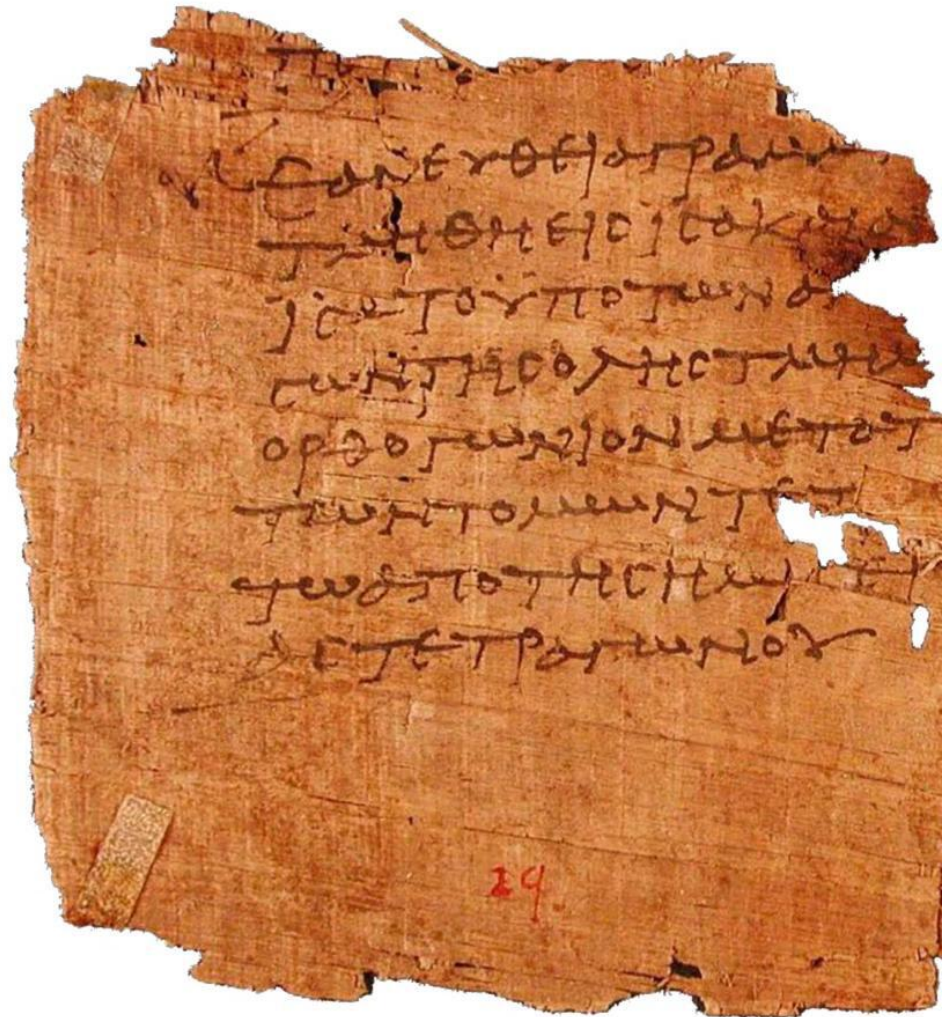 ΕΑΝΕΥΘΕΙΑΓΡΑΜΜ
ΤΜΗΘΗΕΙΣΙΣΑΚΑΙΑ
ΙΣΑΤΟΫΠΟΤΩΝΑ
ΣΩΝΤΗΣΟΛΗΣΤΜΗΜ
ΟΡΘΟΓΩΝΙΟΝΜΕΤΟΤ
ΤΩΝΤΟΜΩΝΤΕΤ
ΤΩΑΠΟΤΗΣΗΜΙΣΕΙ
ΑΣΤΕΤΡΑΓΩΝΟΥ
29